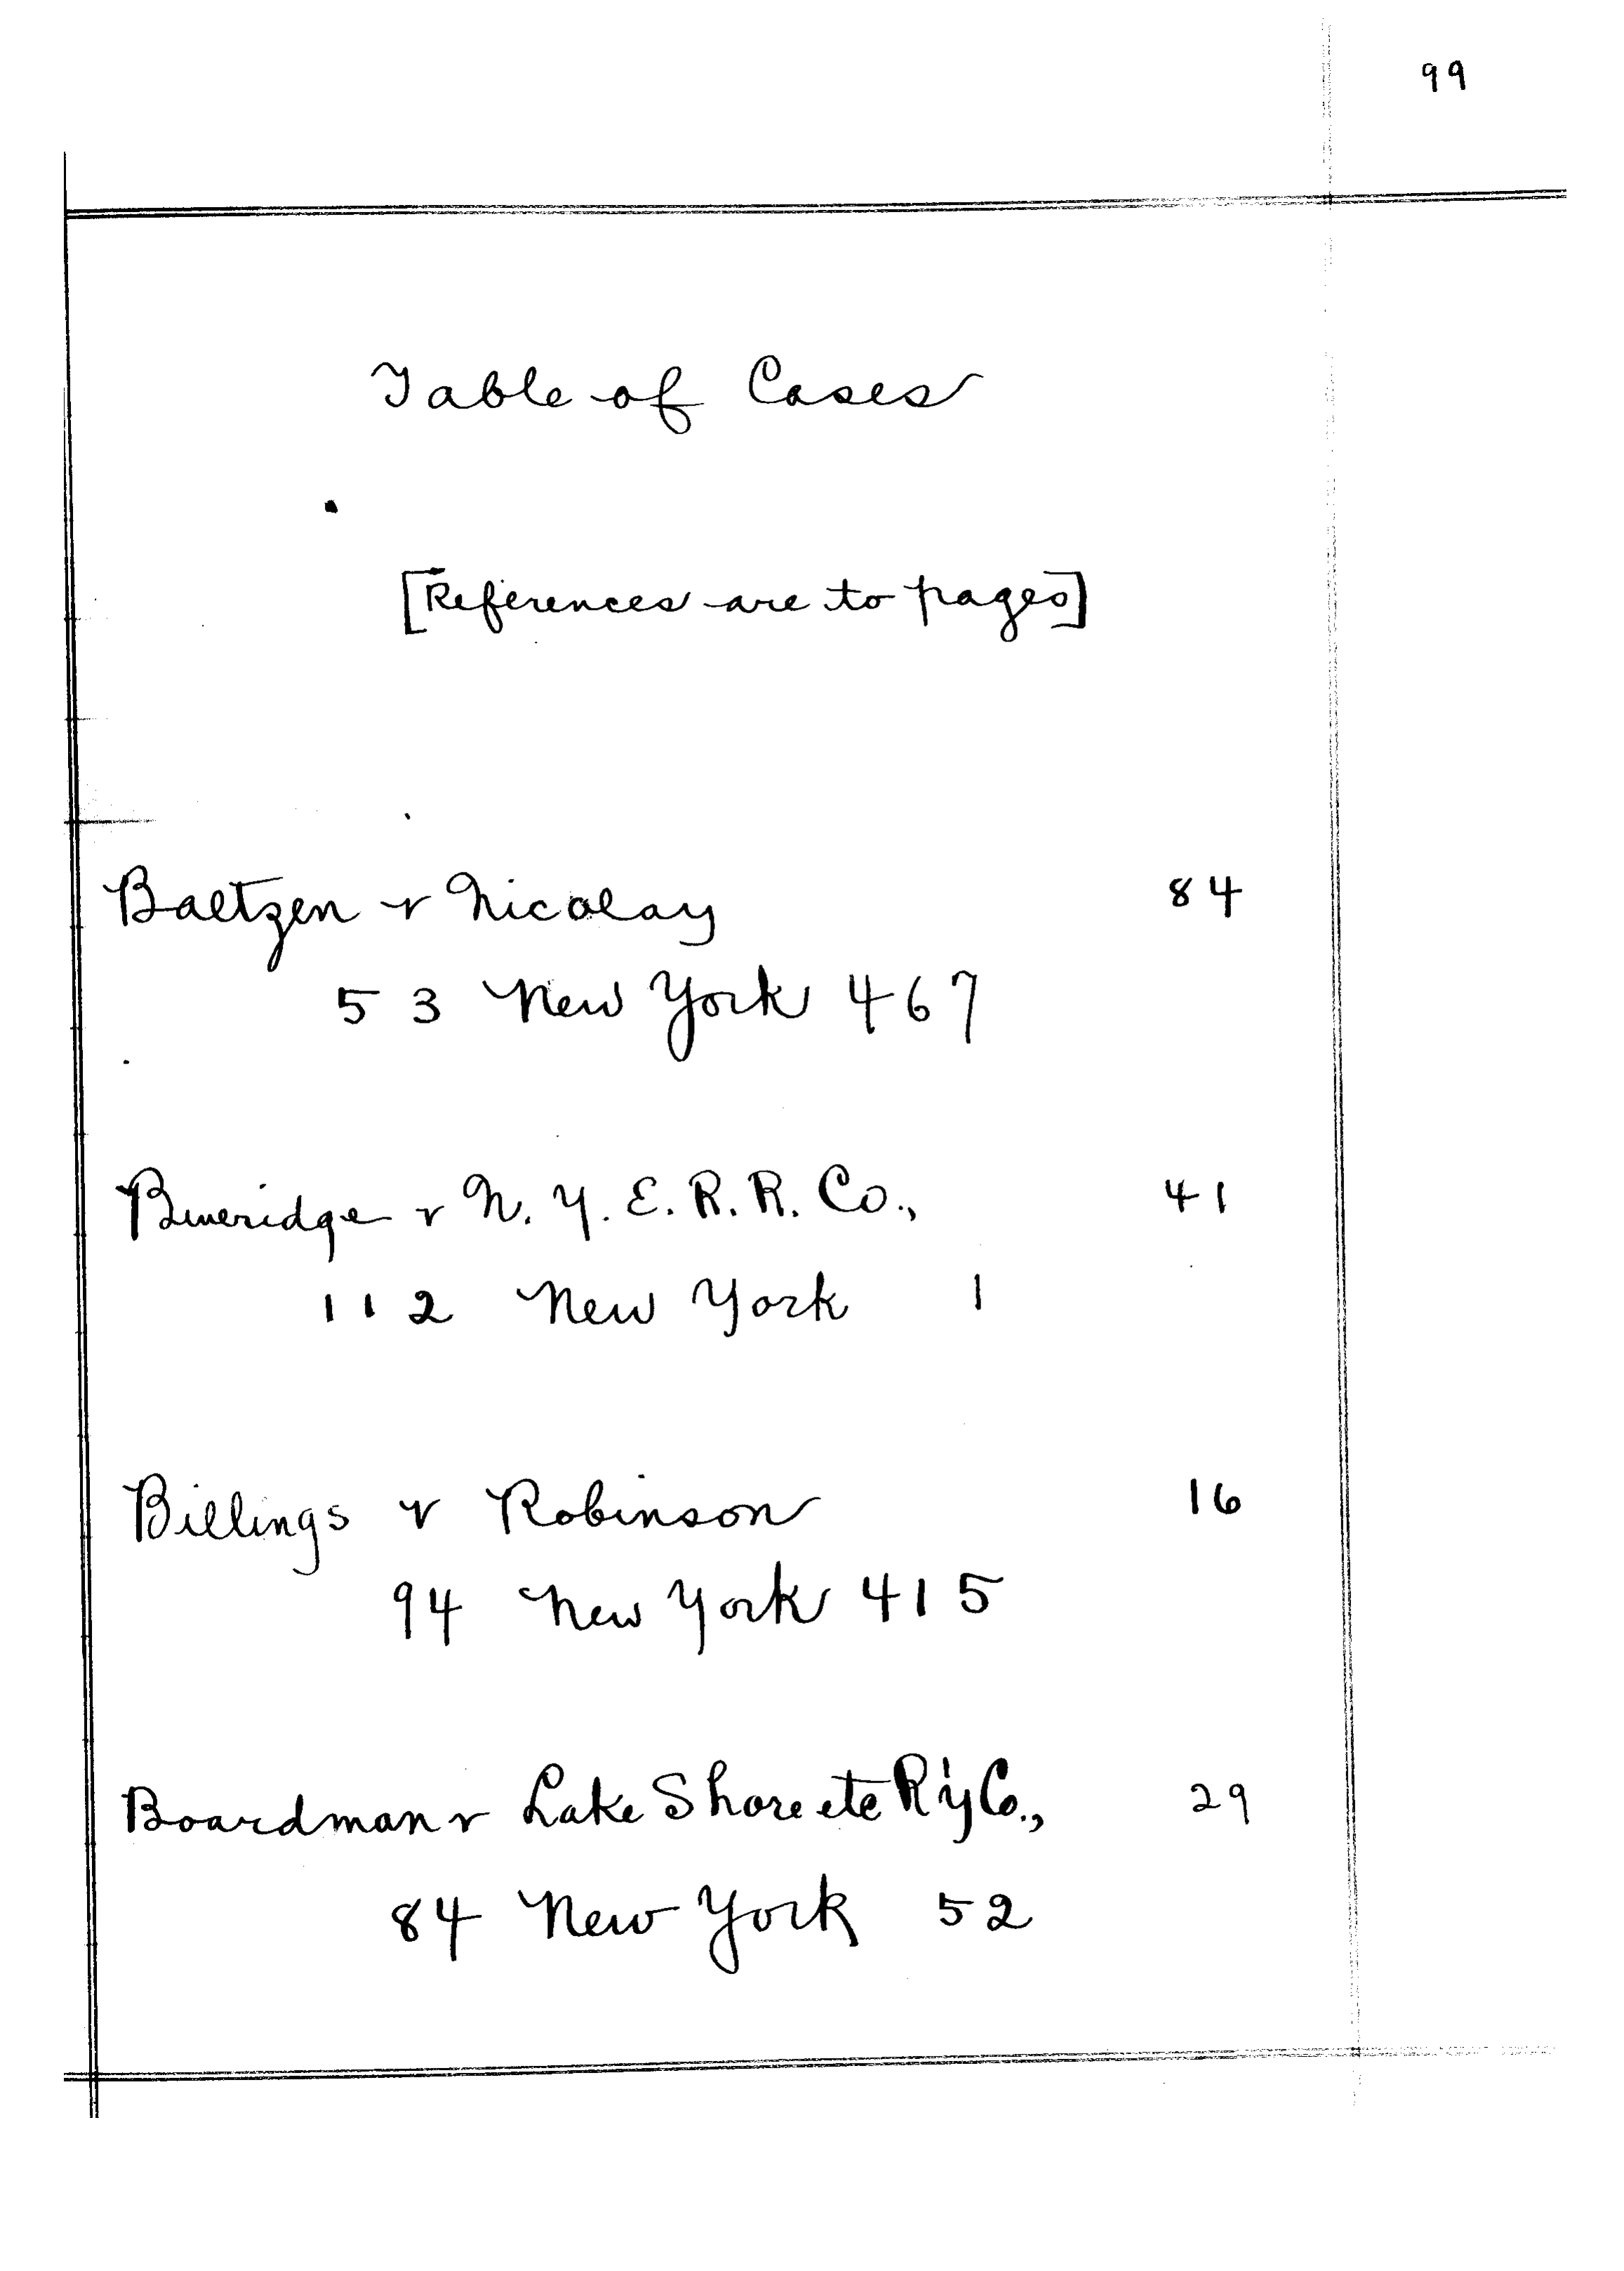 99
Table of Cases
[References are to pages]
Baltzen v Nicolay 84
53 New York 467
Beveridge v N. Y. E. R. R. Co., 41
112 New York 1
Billings v Robinson 16
94 New York 415
Boardman v Lake Shore etc R'y Co., 29
84 New York 52